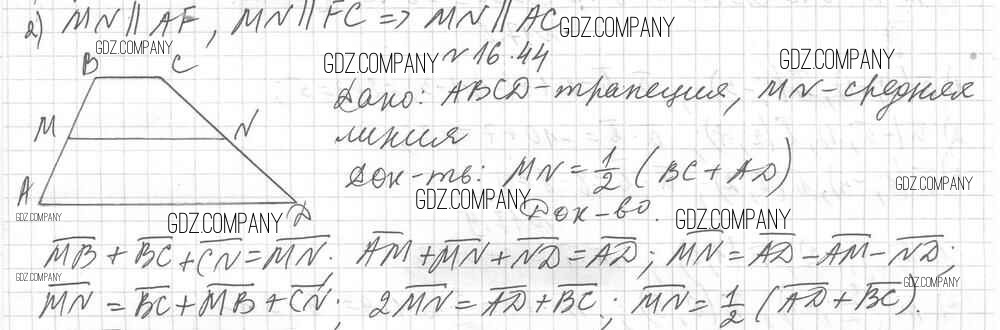 2) MN || AF, MN || FC => MN || AC GDZ.COMPANY
GDZ.COMPANY
B C
GDZ.COMPANY № 16.44 GDZ.COMPANY
Дано: ABCD - трапеция, MN - средняя
M N
линия
Док-ть: MN = 1/2 (BC + AD)
A D
GDZ.COMPANY
GDZ.COMPANY
GDZ.COMPANY GDZ.COMPANY GDZ.COMPANY
Док-во.
M̅B̅ + B̅C̅ + C̅N̅ = M̅N̅. A̅M̅ + M̅N̅ + N̅D̅ = A̅D̅; M̅N̅ = A̅D̅ - A̅M̅ - N̅D̅;
GDZ.COMPANY GDZ.COMPANY
M̅N̅ = B̅C̅ + M̅B̅ + C̅N̅; 2M̅N̅ = A̅D̅ + B̅C̅; M̅N̅ = 1/2 (A̅D̅ + B̅C̅).